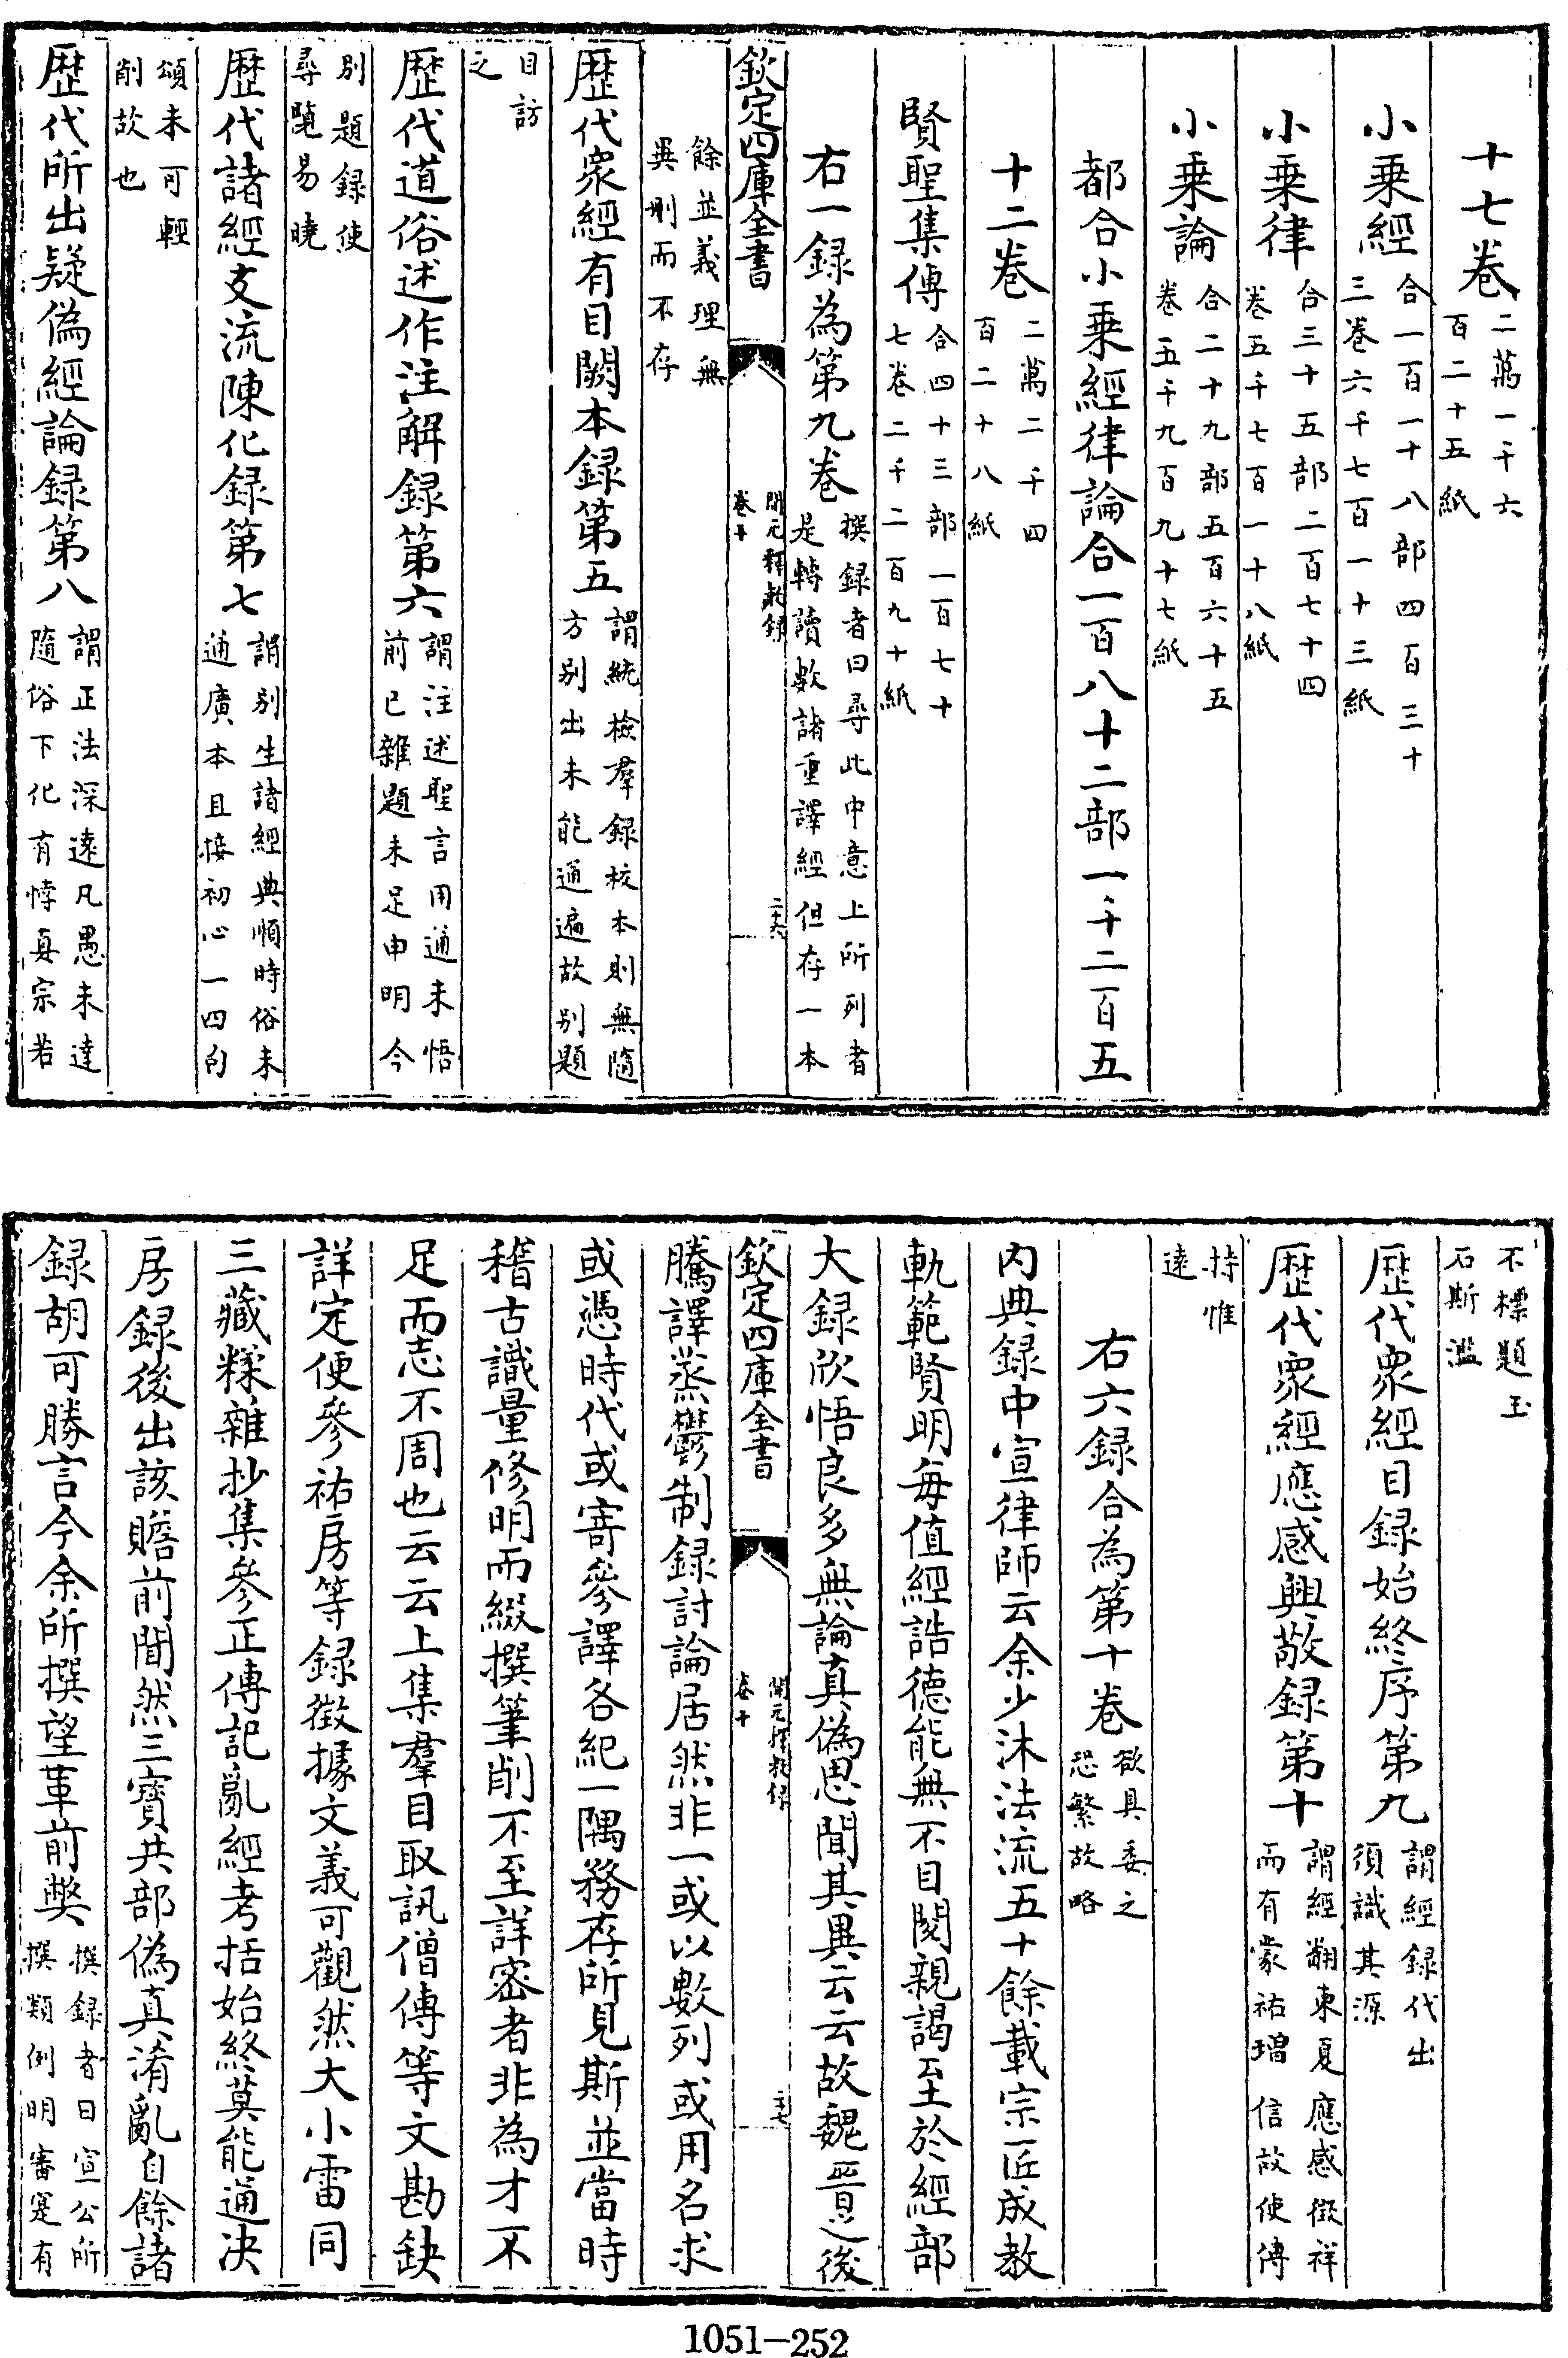 十七卷二萬一千六
百二十五紙
小乗經合一百一十八部四百三十
三卷六千七百一十三紙
小乗律合三十五部二百七十四
卷五千七百一十八紙
小乗論合二十九部五百六十五
卷五千九百九十七紙
都合小乗經律論合一百八十二部一千二百五
十二卷二萬二千四
百二十八紙
賢聖集傳合四十三部一百七十
七卷二千二百九十紙
右一録為第九卷撰録者曰尋此中意上所列者
是轉讀數諸重譯經但存一本
欽定四庫全書
開元釋教録
卷十
二十六
餘並義理無
異刪而不存
歴代衆經有目闕本録第五謂統檢羣録校本則無隨
方别出未能通遍故别題
目訪
之
歴代道俗述作注解録第六謂注述聖言用通未悟
前已雜題未足申明今
别題録使
尋覽易曉
歴代諸經支流陳化録第七謂别生諸經典順時俗未
通廣本且接初心一四句
頌未可輕
削故也
歴代所出疑偽經論録第八謂正法深逺凡愚未達
隨俗下化有悖真宗若
不標題玉
石斯濫
歴代衆經目録始終序第九謂經録代出
須識其源
歴代衆經應感興敬録第十謂經翻東夏應感徴祥
而有蒙祐增信故使傳
持惟
逺
右六録合為第十卷欲具委之
恐繁故略
内典録中宣律師云余少沐法流五十餘載宗匠成教
軌範賢明每值經誥德能無不目閲親謁至於經部
大録欣悟良多無論真偽思聞其異云云故魏晉之後
欽定四庫全書
開元釋教録
卷十
二十七
騰譯蒸鬱制録討論居然非一或以數列或用名求
或憑時代或寄參譯各紀一隅務存所見斯並當時
稽古識量修明而綴撰筆削不至詳密者非為才不
足而志不周也云云上集羣目取訊僧傳等文勘缺
詳定便參祐房等録徴據文義可觀然大小雷同
三藏糅雜抄集參正傳記亂經考括始終莫能通决
房録後出該贍前聞然三寳共部偽真淆亂自餘諸
録胡可勝言今余所撰望革前弊撰録者曰宣公所
撰類例明審寔有
1051-252